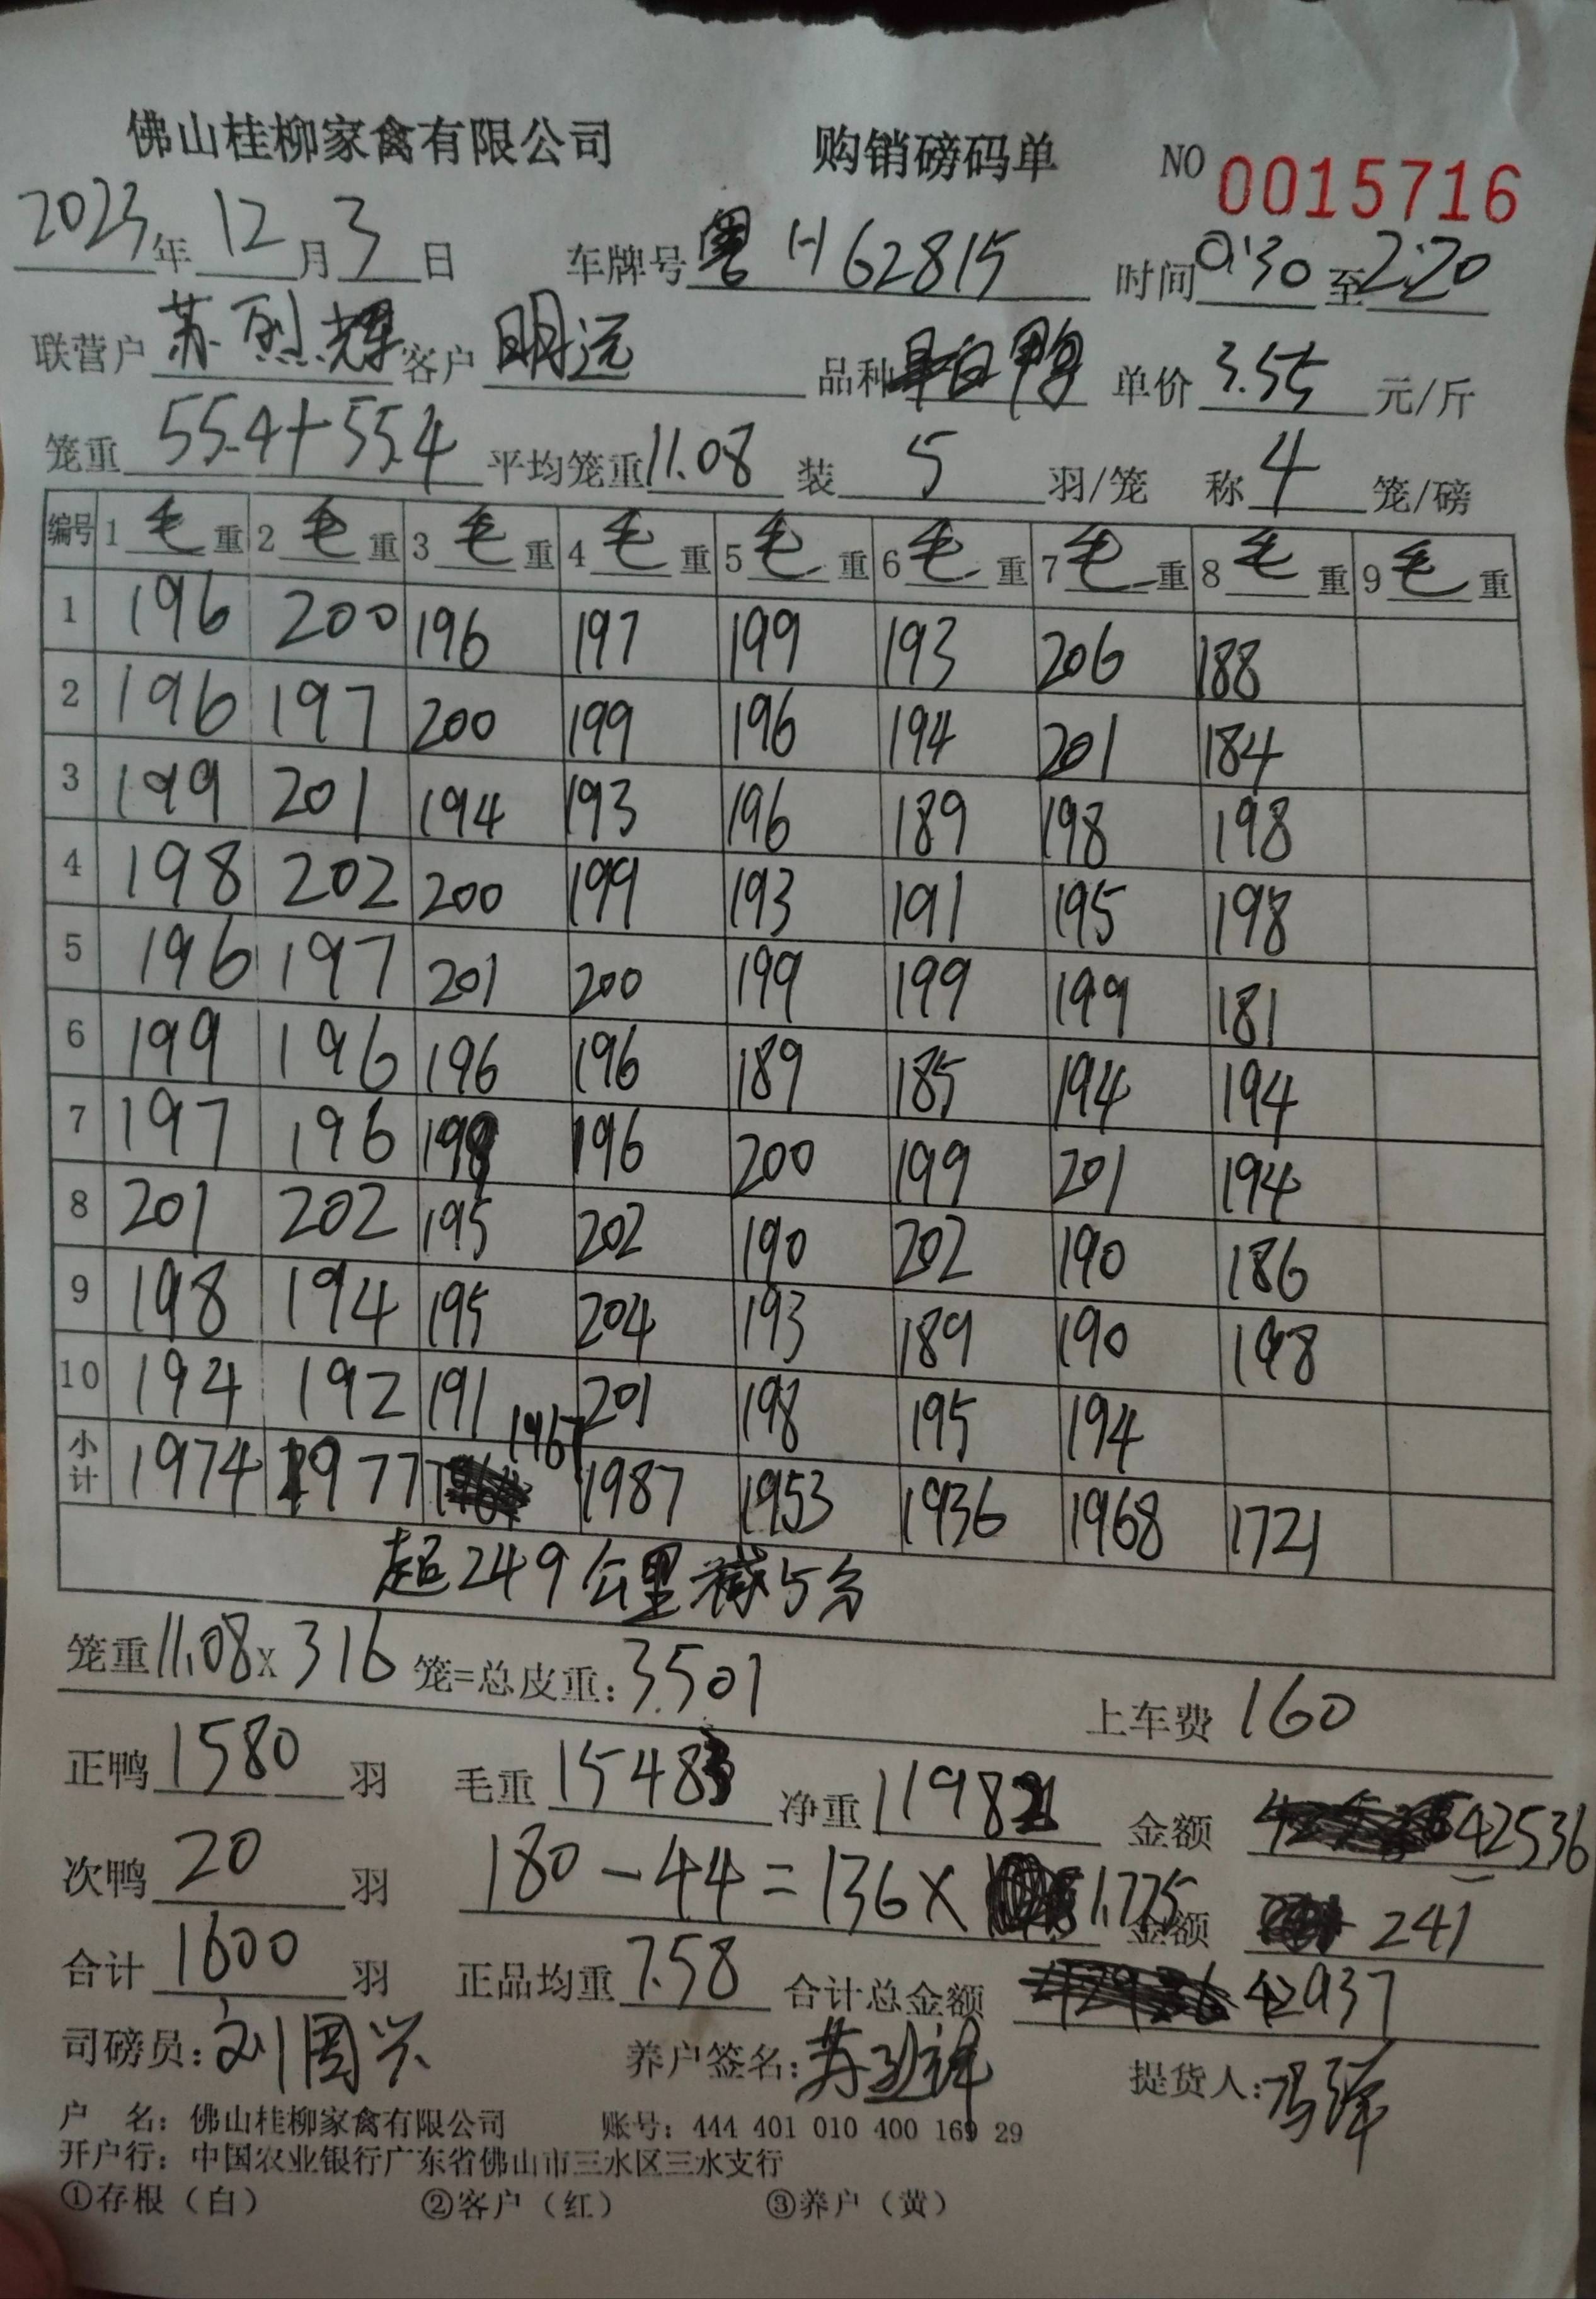 佛山桂柳家禽有限公司 购销磅码单 NO 0015716
2023年12月3日 车牌号粤H62815 时间0:30至2:20
联营户苏烈辉客户明远 品种白鸭 单价3.55元/斤
笼重55.4+55.4平均笼重11.08装5羽/笼 称4笼/磅
编号 1毛重 2毛重 3毛重 4毛重 5毛重 6毛重 7毛重 8毛重 9毛重
1 196 200 196 197 199 193 206 188
2 196 197 200 199 196 194 201 184
3 199 201 194 193 196 189 198 198
4 198 202 200 199 193 191 195 198
5 196 197 201 200 199 199 199 181
6 199 196 196 196 189 185 194 194
7 197 196 199 196 200 199 201 194
8 201 202 195 202 190 202 190 186
9 198 194 195 204 193 189 190 198
10 194 192 191 201 198 195 194
小计 1974 1977 1967 1987 1953 1936 1968 1721
超249公里减5分
笼重11.08x316笼=总皮重:3501 上车费160
正鸭1580羽 毛重15483 净重11982 金额42536
次鸭20羽 180-44=136×1.775 金额241
合计1600羽 正品均重7.58 合计总金额42937
司磅员:刘周兴 养户签名: 提货人:冯
户 名:佛山桂柳家禽有限公司 账号:444 401 010 400 169 29
开户行:中国农业银行广东省佛山市三水区三水支行
①存根(白) ②客户(红) ③养户(黄)